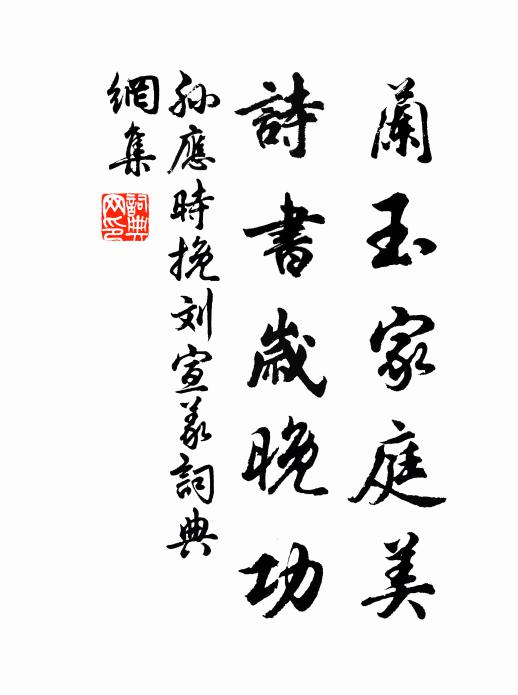 蘭玉家庭美
詩書歲晚功
孫應時挽刘宣義詞典
網集
詞典网印